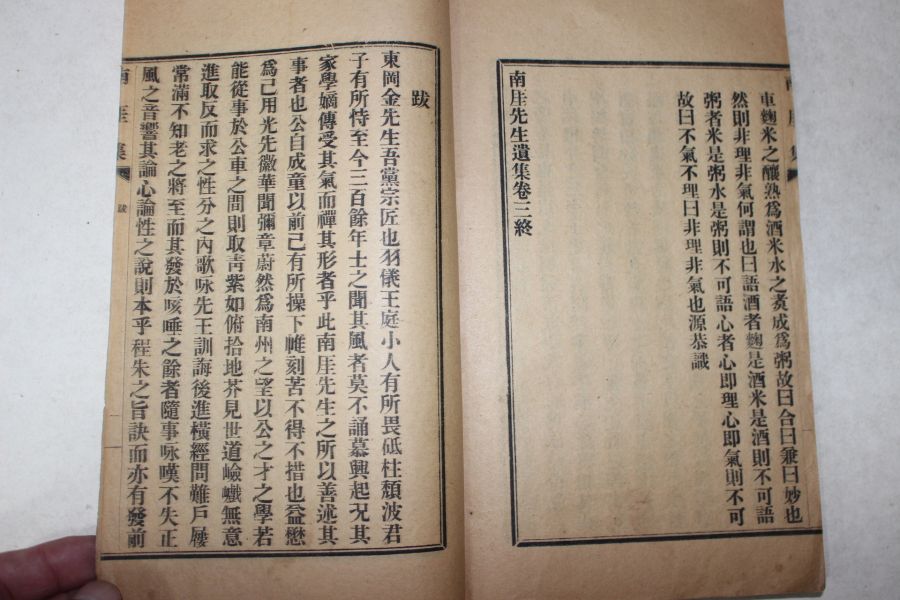 車麴米之釀熟爲酒米水之烹成爲粥故曰合曰兼曰妙也
然則非理非氣何謂也曰語酒者麴是酒米是酒則不可語
粥者米是粥水是粥則不可語心者心卽理心卽氣則不可
故曰不氣不理曰非理非氣也源恭識
南厓先生遺集卷三終
跋
東岡金先生吾黨宗匠也羽儀王庭小人有所畏砥柱頹波君
子有所恃至今三百餘年士之聞其風者莫不誦慕興起况其
家學嫡傳受其氣而禪其形者乎此南厓先生之所以善述其
事者也公自成童以前已有所操下帷刻苦不得不措也益懋
爲己用光先徽華聞彌章蔚然爲南州之望以公之才之學若
能從事於公車之間則取靑紫如俯拾地芥見世道嶮巇無意
進取反而求之性分之內歌咏先王訓誨後進橫經問難戶屨
常滿不知老之將至而其發於咳唾之餘者隨事咏嘆不失正
風之音響其論心論性之說則本乎程朱之旨訣而亦有發前
跋